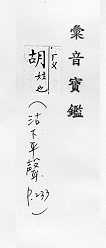 彙音寶鑑
胡
姓也
(沽下平聲
P.233)